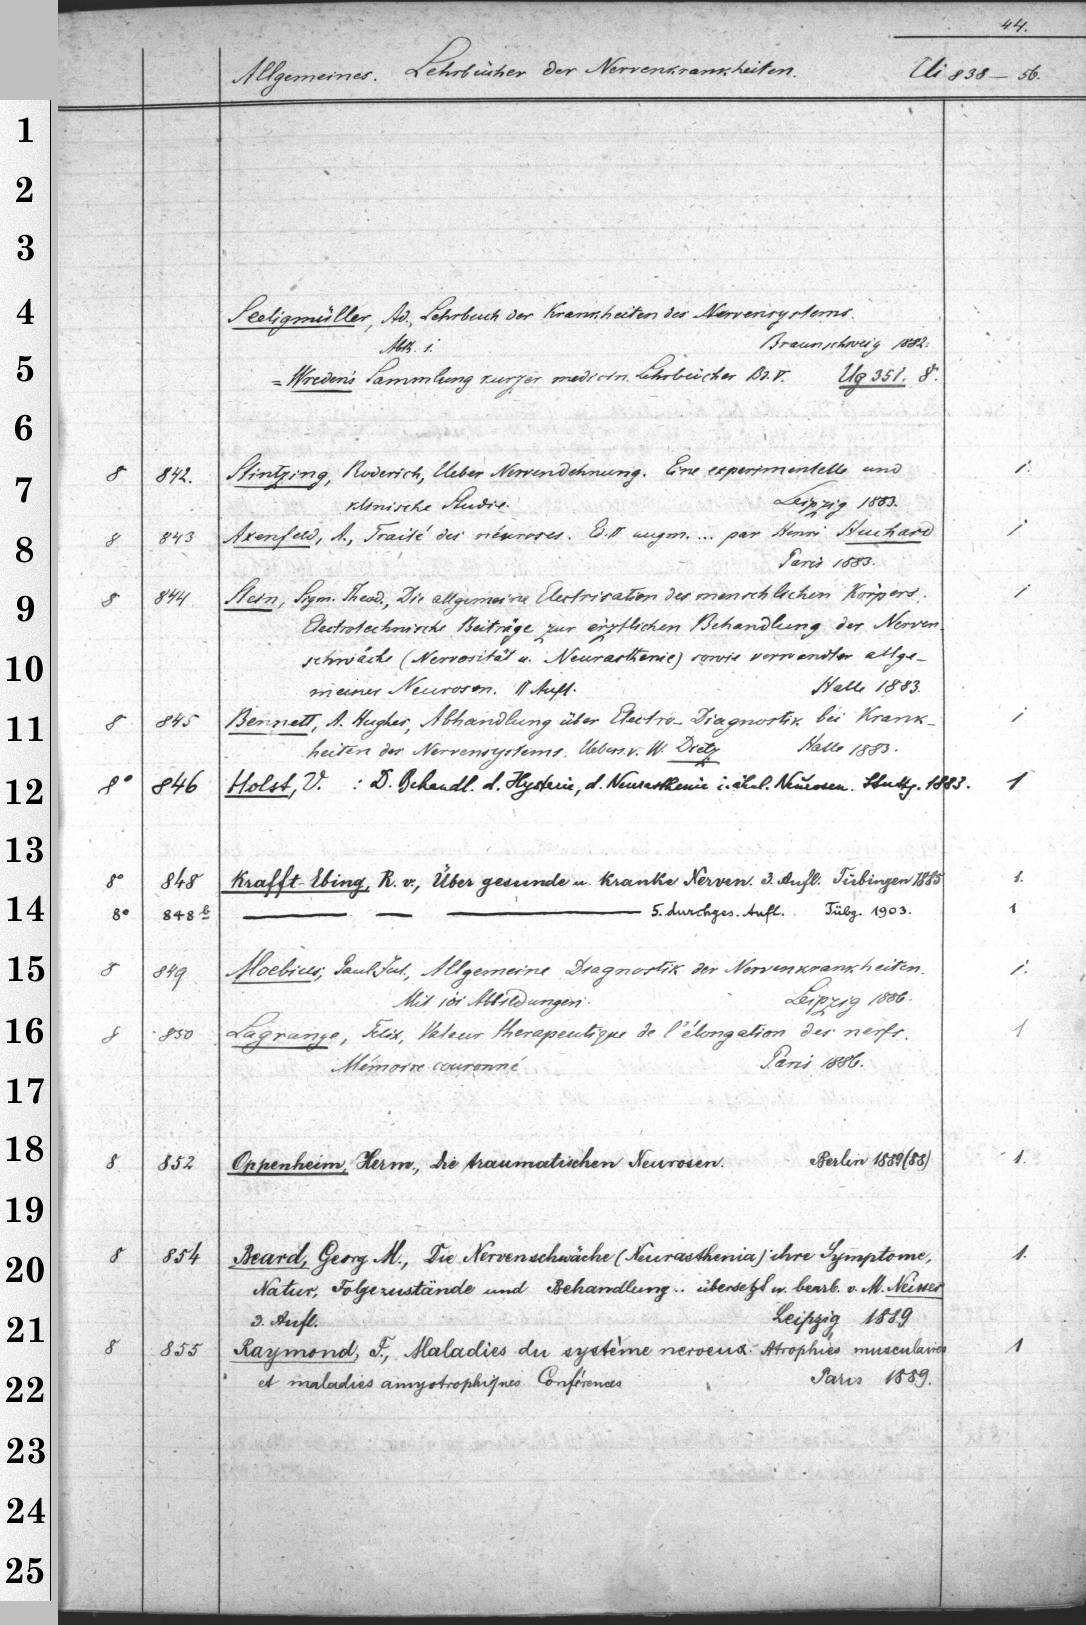 44.
Allgemeines. Lehrbücher der Nervenkrankheiten. Ui 838 — 56.
1
2
3
4
Seeligmüller, Ad., Lehrbuch der Krankheiten des Nervensystems.
Abth. i. Braunschweig 1882.
5
= Wreden's Sammlung kurzer medicin. Lehrbücher Bd. V. Ug 351. 8.
6
7
8 842. Stintzing, Roderich, Ueber Nervendehnung. Eine experimentelle und i.
klinische Studie. Leipzig 1883.
8
8 843 Axenfeld, A., Traité des névroses. Ed. II augm. ... par Henri Huchard i
Paris 1883.
9
8 844 Stein, Sigm. Theod., Die allgemeine Electrisation des menschlichen Körpers. i
Electrotechnische Beiträge zur ärztlichen Behandlung der Nerven-
10
schwäche (Nervosität u. Neurasthenie) sowie verwandter allge-
meiner Neurosen. II Aufl. Halle 1883.
11
8 845 Bennett, A. Hughes, Abhandlung über Electro-Diagnostik bei Krank- i
heiten des Nervensystems. Uebers. v. W. Dietz Halle 1883.
12
8° 846 Holst, V. : D. Behandl. d. Hysterie, d. Neurasthenie u. ähnl. Neurosen. Stuttg. 1883. 1
13
8° 848 Krafft-Ebing, R. v., Über gesunde u. kranke Nerven. 3. Aufl. Tübingen 1885 1.
14
8° 848 b — — — 5. durchges. Aufl. Tübg. 1903. 1
15
8 849 Moebius, Paul Jul., Allgemeine Diagnostik der Nervenkrankheiten. i.
Mit 101 Abbildungen. Leipzig 1886.
16
8 850 Lagrange, Felix, Valeur therapeutique de l'élongation des nerfs. 1
Mémoire couronné Paris 1886.
17
18
8 852 Oppenheim, Herm., Die traumatischen Neurosen. Berlin 1889(88) 1.
19
20
8 854 Beard, Georg M., Die Nervenschwäche (Neurasthenia) ihre Symptome, 1.
Natur, Folgezustände und Behandlung .. übersetzt u. bearb. v. M. Neisser
21
3. Aufl. Leipzig 1889
8 855 Raymond, F., Maladies du système nerveux. Atrophies musculaires 1
22
et maladies amyotrophiques Conférences Paris 1889.
23
24
25